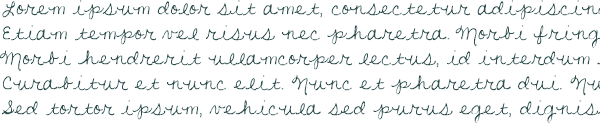 Lorem ipsum dolor sit amet, consectetur adipiscin
Etiam tempor vel risus nec pharetra. Morbi fring
Morbi hendrerit ullamcorper lectus, id interdum
Curabitur et nunc elit. Nunc et pharetra dui. Nu
Sed tortor ipsum, vehicula sed purus eget, dignis